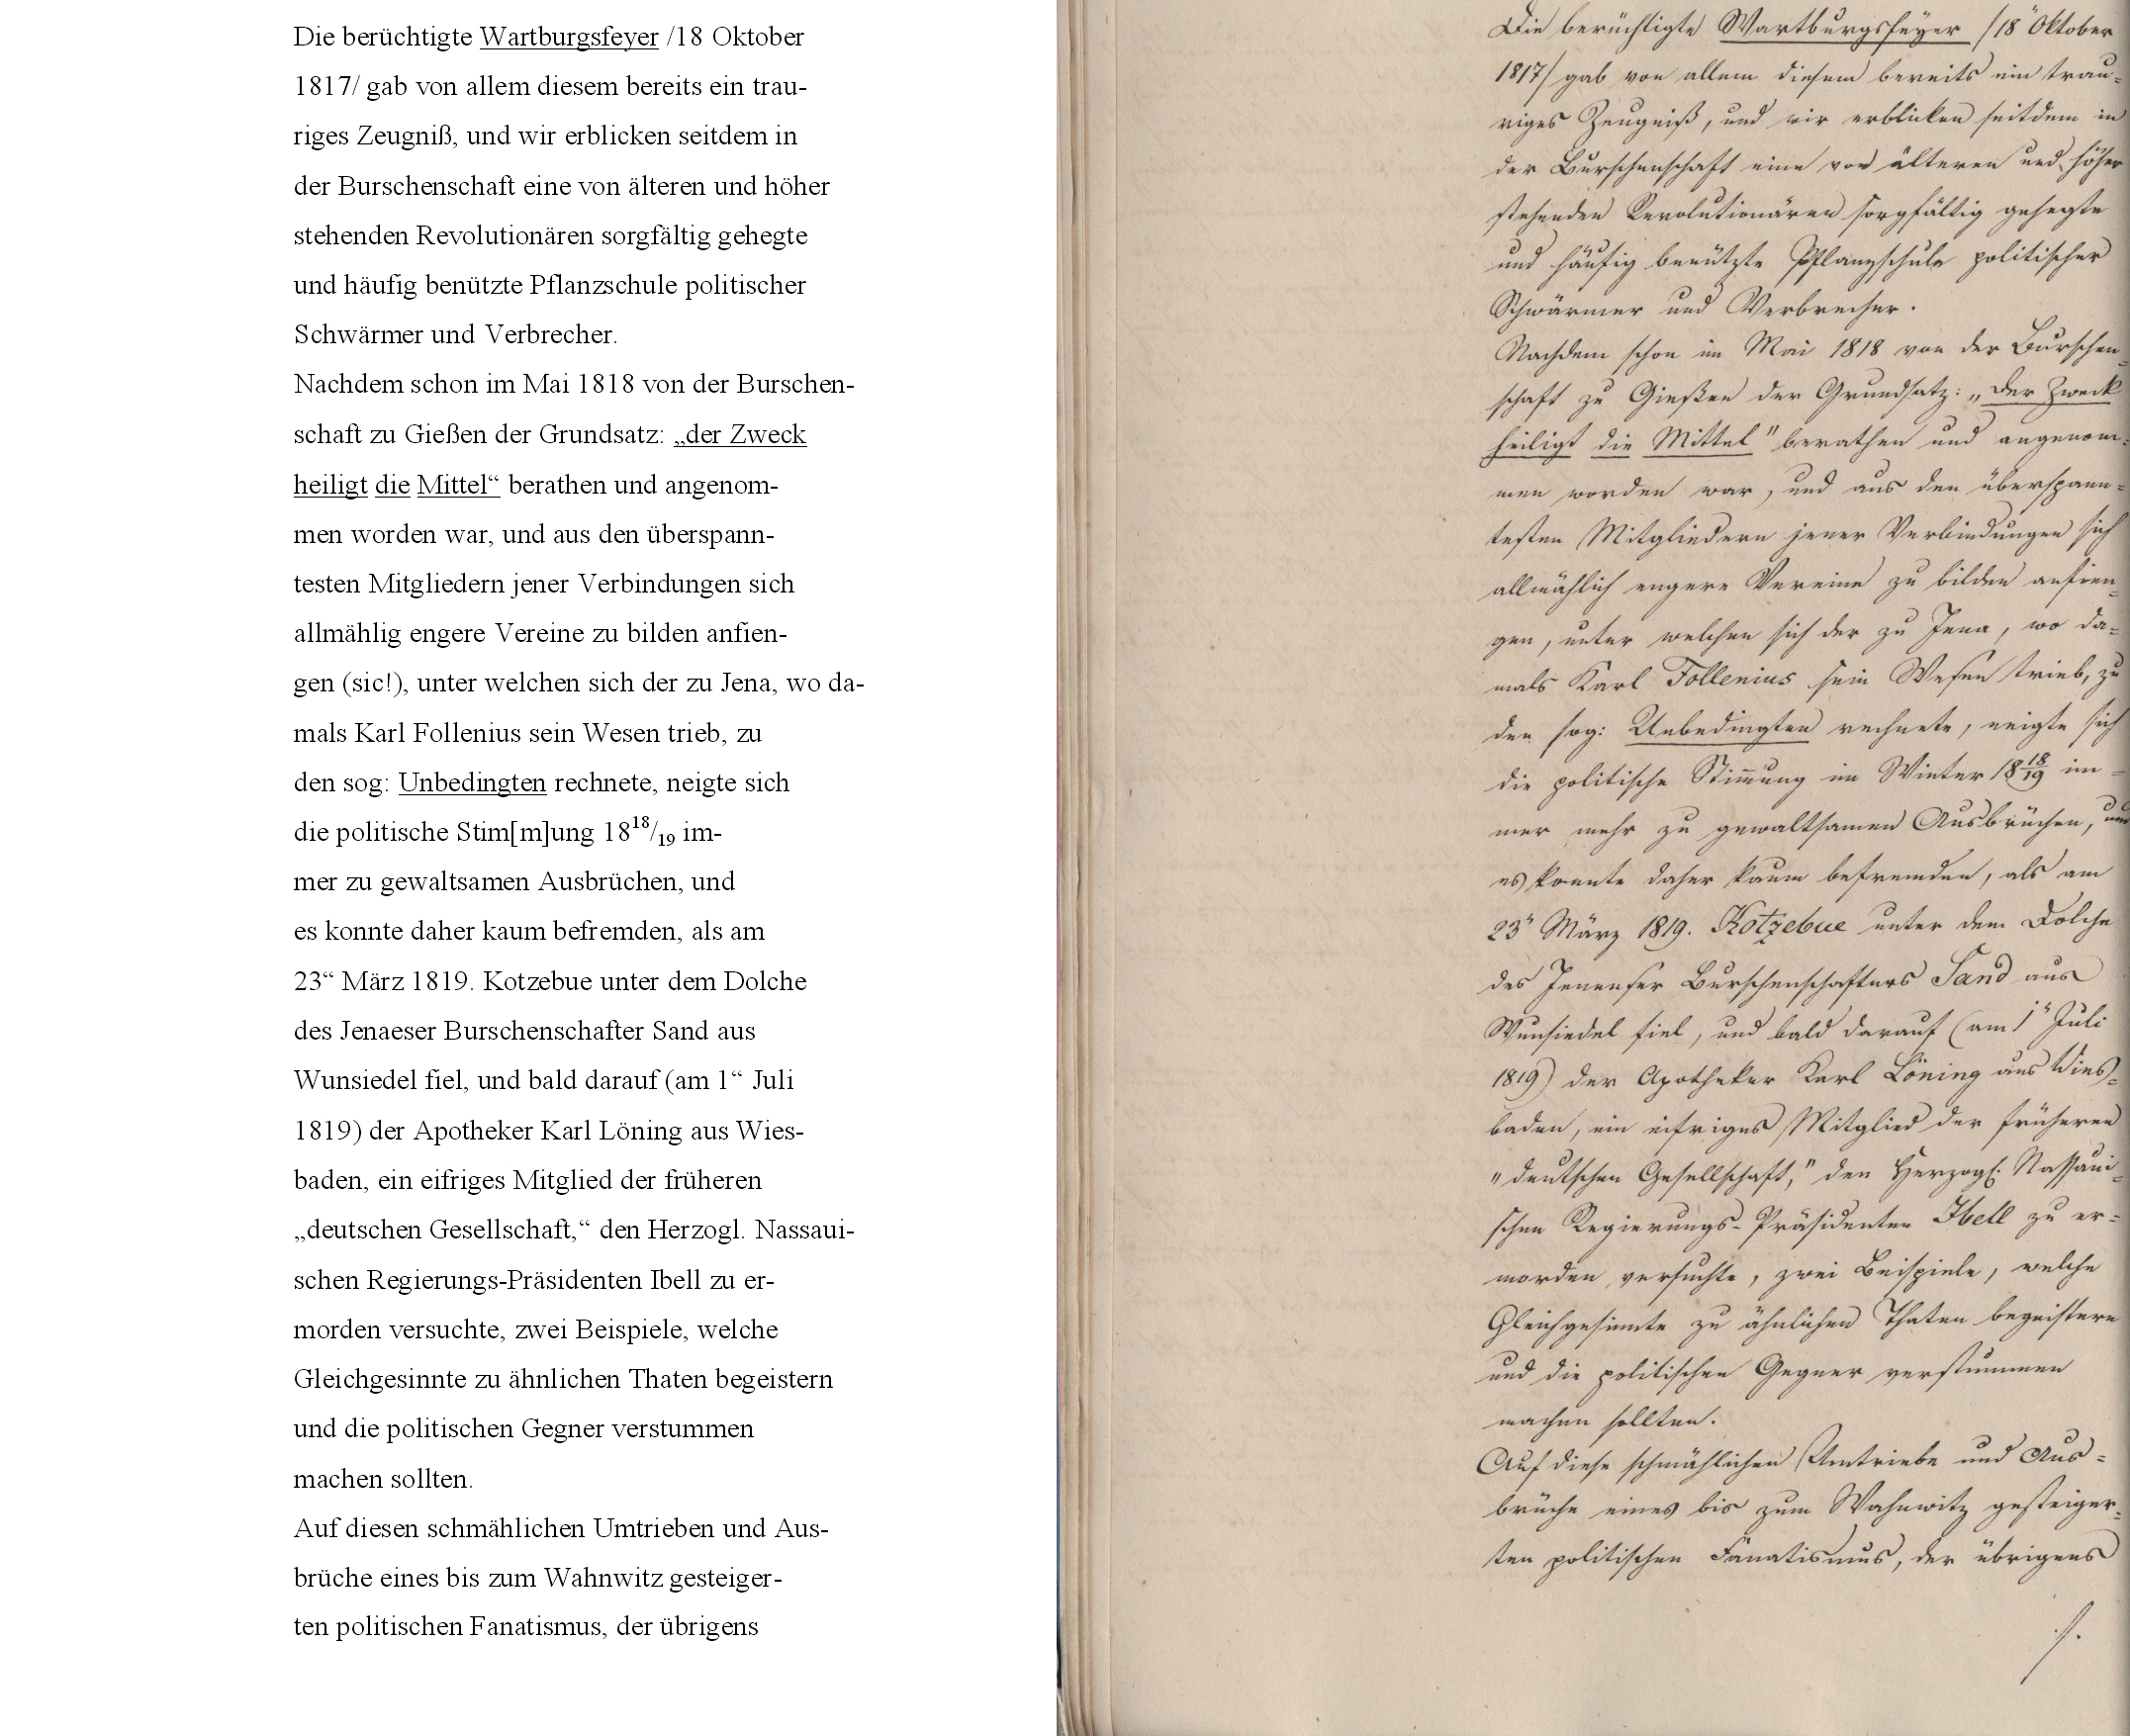 Die berüchtigte Wartburgsfeyer /18 Oktober
1817/ gab von allem diesem bereits ein trau-
riges Zeugniß, und wir erblicken seitdem in
der Burschenschaft eine von älteren und höher
stehenden Revolutionären sorgfältig gehegte
und häufig benützte Pflanzschule politischer
Schwärmer und Verbrecher.
Nachdem schon im Mai 1818 von der Burschen-
schaft zu Gießen der Grundsatz: „der Zweck
heiligt die Mittel“ berathen und angenom-
men worden war, und aus den überspann-
testen Mitgliedern jener Verbindungen sich
allmählig engere Vereine zu bilden anfien-
gen (sic!), unter welchen sich der zu Jena, wo da-
mals Karl Follenius sein Wesen trieb, zu
den sog: Unbedingten rechnete, neigte sich
die politische Stim[m]ung 18¹⁸/₁₉ im-
mer zu gewaltsamen Ausbrüchen, und
es konnte daher kaum befremden, als am
23“ März 1819. Kotzebue unter dem Dolche
des Jenaeser Burschenschafter Sand aus
Wunsiedel fiel, und bald darauf (am 1“ Juli
1819) der Apotheker Karl Löning aus Wies-
baden, ein eifriges Mitglied der früheren
„deutschen Gesellschaft,“ den Herzogl. Nassaui-
schen Regierungs-Präsidenten Ibell zu er-
morden versuchte, zwei Beispiele, welche
Gleichgesinnte zu ähnlichen Thaten begeistern
und die politischen Gegner verstummen
machen sollten.
Auf diesen schmählichen Umtrieben und Aus-
brüche eines bis zum Wahnwitz gesteiger-
ten politischen Fanatismus, der übrigens
Die berüchtigte Wartburgsfeyer /18" Oktober
1817/ gab von allem diesem bereits ein trau=
riges Zeugniß, und wir erblicken seitdem in
der Burschenschaft eine von älteren und höher
stehenden Revolutionären sorgfältig gehegte
und häufig benützte Pflanzschule politischer
Schwärmer und Verbrecher.
Nachdem schon im Mai 1818 von der Burschen=
schaft zu Gießen der Grundsatz: „der Zweck
heiligt die Mittel" berathen und angenom=
men worden war, und aus den überspann=
testen Mitgliedern jener Verbindungen sich
allmählich engere Vereine zu bilden anfien=
gen, unter welchen sich der zu Jena, wo da=
mals Karl Follenius sein Wesen trieb, zu
den sog: Unbedingten rechnete, neigte sich
die politische Stimmung im Winter 18 18/19 im=
mer mehr zu gewaltsamen Ausbrüchen, und
es konnte daher kaum befremden, als am
23" März 1819. Kotzebue unter dem Dolche
des Jenenser Burschenschafters Sand aus
Wunsiedel fiel, und bald darauf (am 1" Juli
1819) der Apotheker Karl Löning aus Wies=
baden, ein eifriges Mitglied der früheren
"deutschen Gesellschaft," den Herzogl. Nassaui=
schen Regierungs-Präsidenten Ibell zu er=
morden versuchte, zwei Beispiele, welche
Gleichgesinnte zu ähnlichen Thaten begeistern
und die politischen Gegner verstummen
machen sollten.
Auf diese schmählichen Umtriebe und Aus=
brüche eines bis zum Wahnwitz gesteiger=
ten politischen Fanatismus, der übrigens